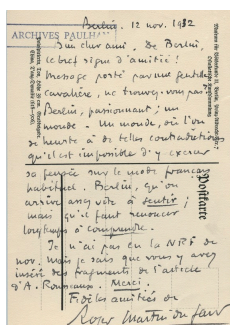 Berlin, 12 nov. 1932
ARCHIVES PAULHAN
Bien cher ami, De Berlin,
ce bref signe d'amitié !
Message porté par une gentille
cavalière, ne trouvez-vous pas
Berlin, passionnant ; un
monde. Un monde, où l'on
se heurte à de telles contradictions
qu'il est impossible d'y exercer
sa pensée sur le mode français
habituel. Berlin, qu'on
arrive assez vite à sentir ;
mais qu'il faut renoncer
longtemps à comprendre.
Je n'ai pas eu la NRF de
nov. mais je sais que vous y avez
inséré des fragments de l'article
d'A. Rousseaux. Merci.
Fidèles amitiés de
Roger Martin du Gard
Postkarte